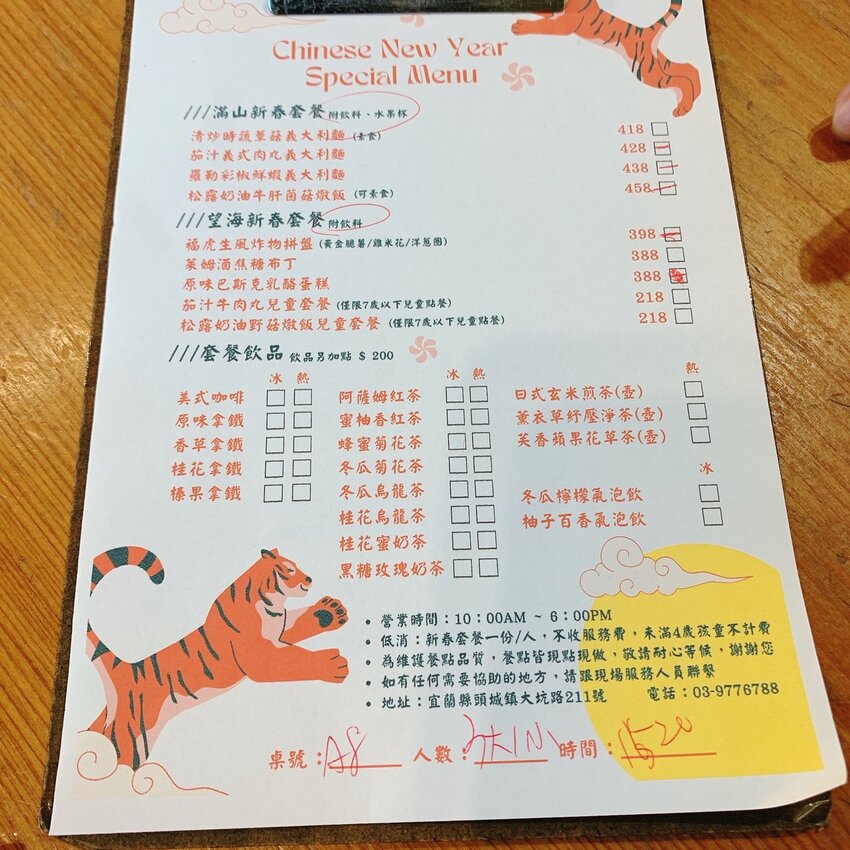 Chinese New Year
Special Menu
///滿山新春套餐 附飲料、水果杯
清炒時蔬蕈菇義大利麵 (素食) 418
茄汁義式肉丸義大利麵 428
羅勒彩椒鮮蝦義大利麵 438
松露奶油牛肝菌菇燉飯 (可素食) 458
///望海新春套餐 附飲料
福虎生風炸物拼盤 (黃金脆薯/雞米花/洋蔥圈) 398
萊姆酒焦糖布丁 388
原味巴斯克乳酪蛋糕 388
茄汁牛肉丸兒童套餐 (僅限7歲以下兒童點餐) 218
松露奶油野菇燉飯兒童套餐 (僅限7歲以下兒童點餐) 218
///套餐飲品 飲品另加點 $ 200
冰 熱
美式咖啡
原味拿鐵
香草拿鐵
桂花拿鐵
榛果拿鐵
冰 熱
阿薩姆紅茶
蜜柚香紅茶
蜂蜜菊花茶
冬瓜菊花茶
冬瓜烏龍茶
桂花烏龍茶
桂花蜜奶茶
黑糖玫瑰奶茶
熱
日式玄米煎茶(壺)
薰衣草紓壓淨茶(壺)
芙香蘋果花草茶(壺)
冰
冬瓜檸檬氣泡飲
柚子百香氣泡飲
• 營業時間：10：00AM ~ 6：00PM
• 低消：新春套餐一份/人，不收服務費，未滿4歲孩童不計費
• 為維護餐點品質，餐點皆現點現做，敬請耐心等候，謝謝您
• 如有任何需要協助的地方，請跟現場服務人員聯繫
• 地址：宜蘭縣頭城鎮大坑路211號 電話：03-9776788
桌號：A8 人數： 時間：1520